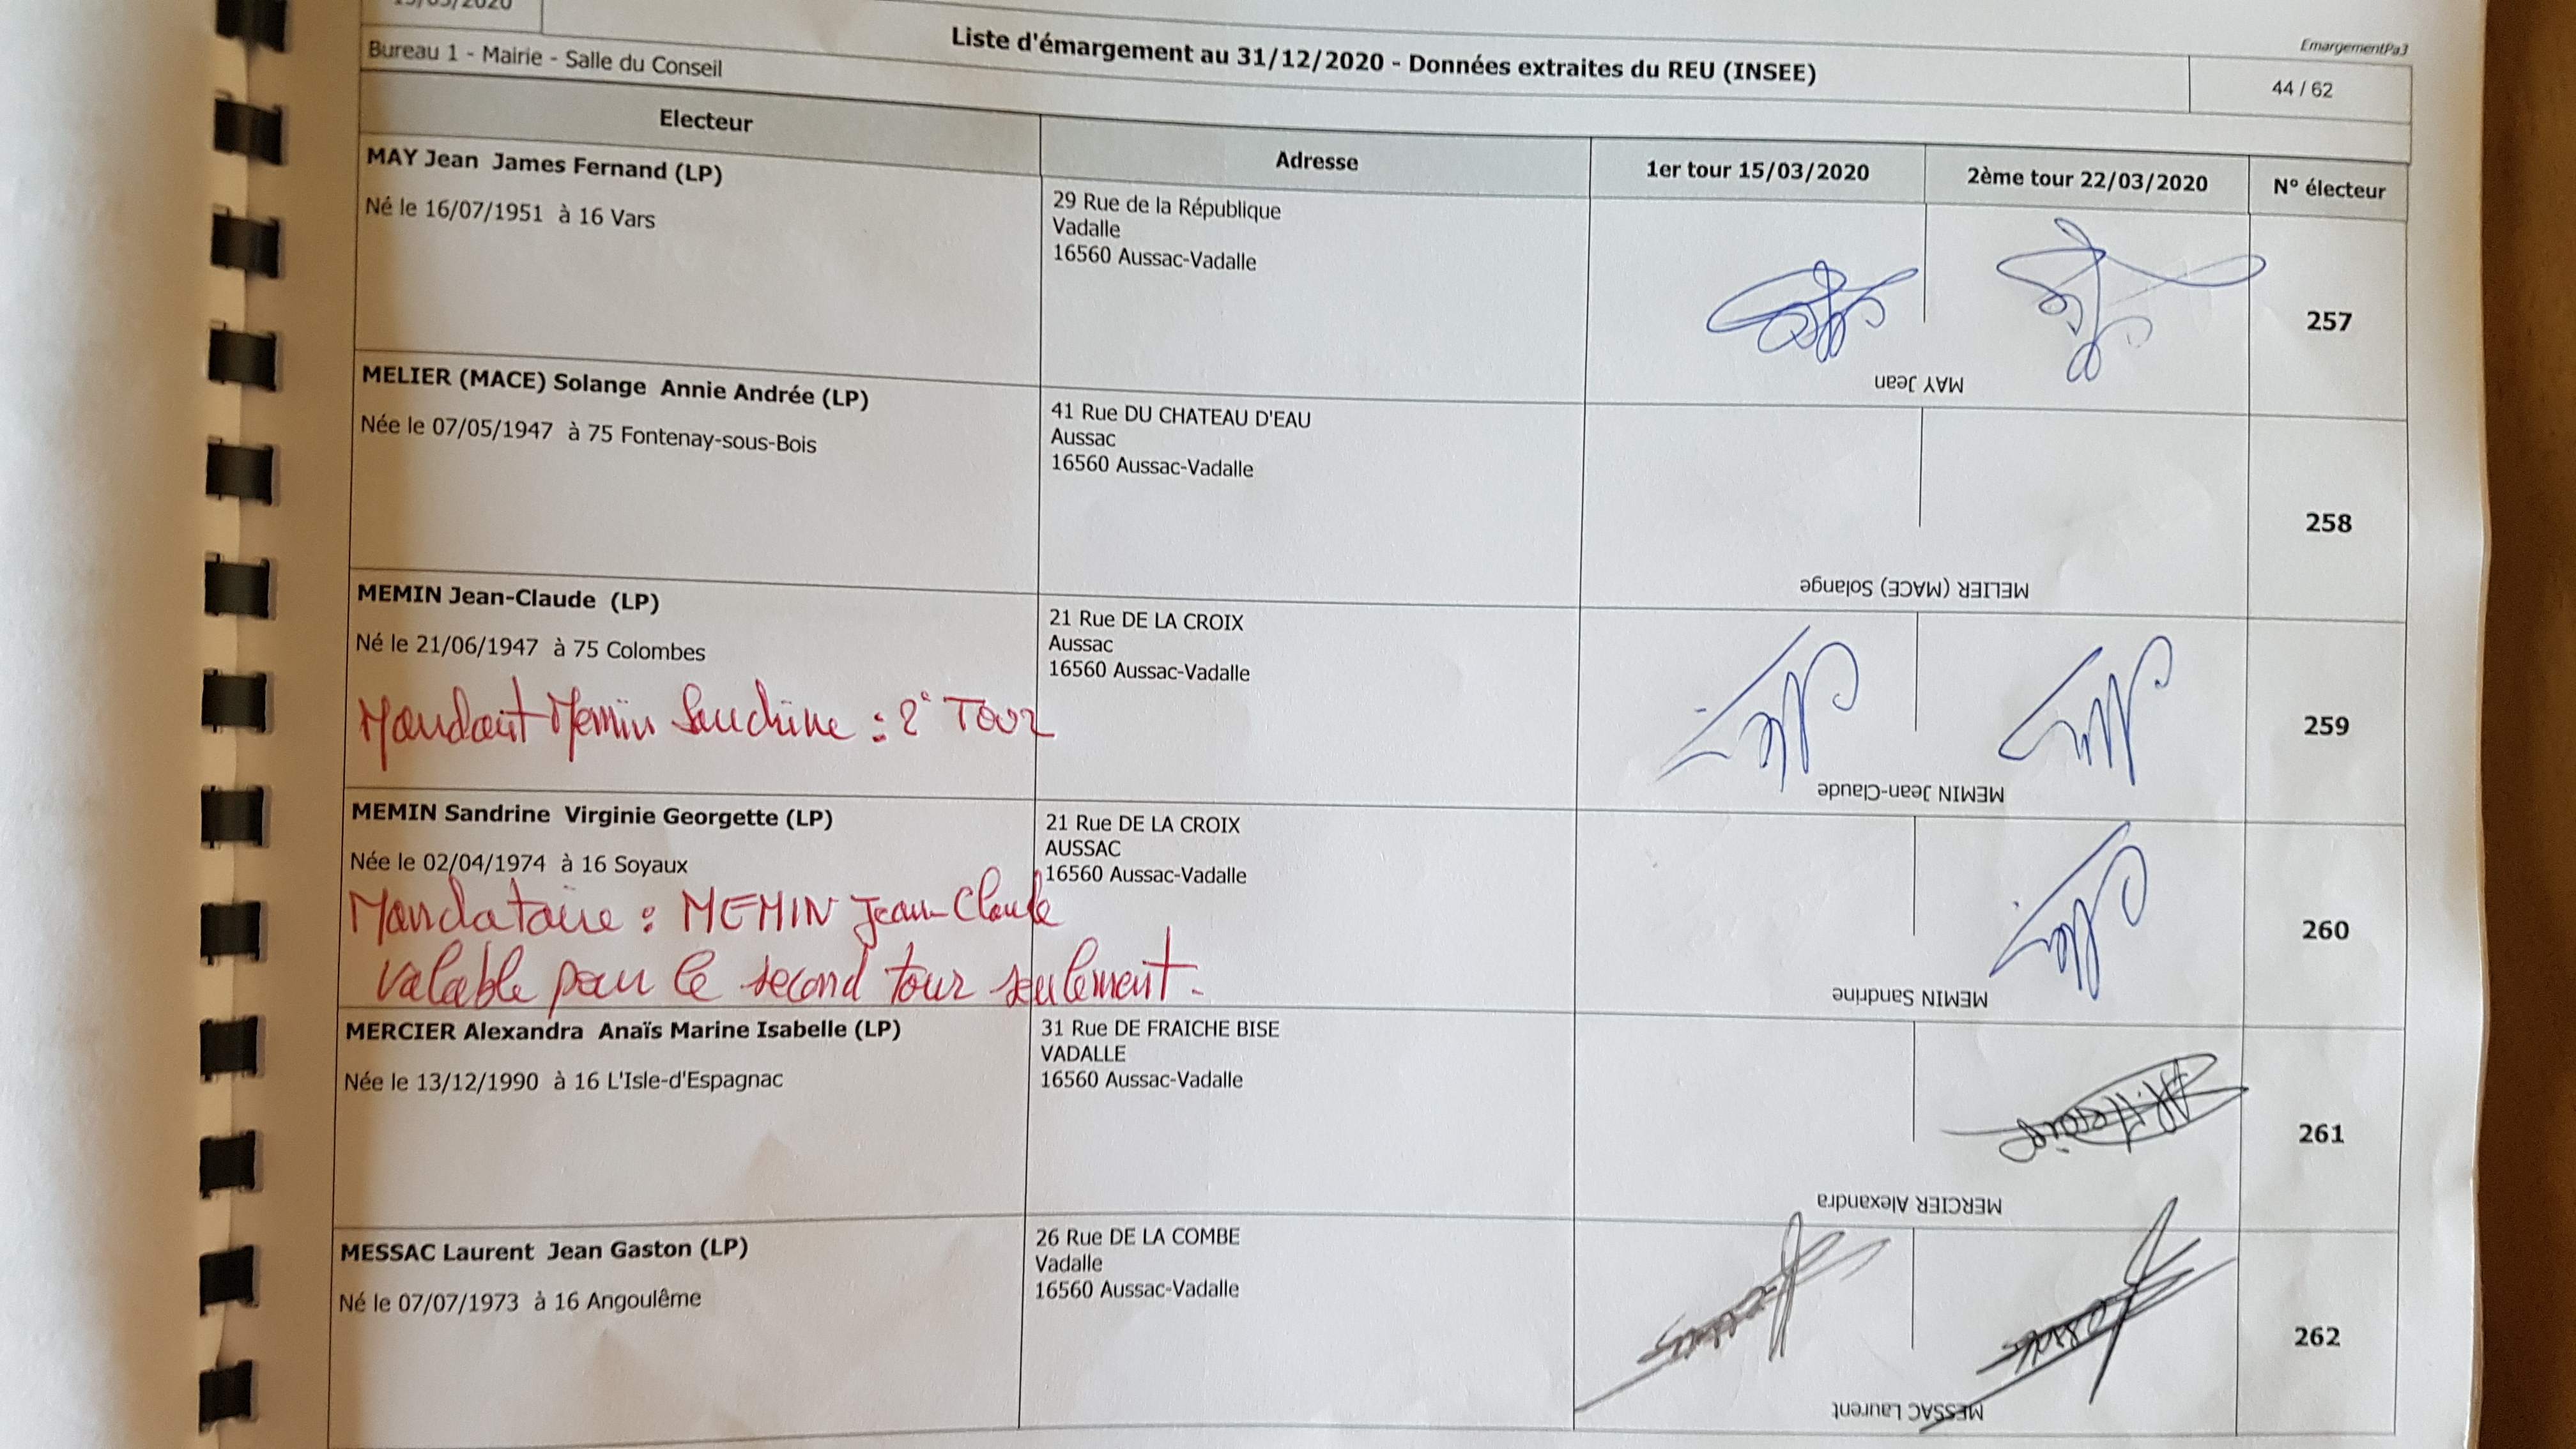 EmargementPa3
Liste d'émargement au 31/12/2020 - Données extraites du REU (INSEE)
Bureau 1 - Mairie - Salle du Conseil
44 / 62
Electeur
Adresse
1er tour 15/03/2020
2ème tour 22/03/2020
N° électeur
MAY Jean James Fernand (LP)
Né le 16/07/1951 à 16 Vars
29 Rue de la République
Vadalle
16560 Aussac-Vadalle
MAY Jean
257
MELIER (MACE) Solange Annie Andrée (LP)
Née le 07/05/1947 à 75 Fontenay-sous-Bois
41 Rue DU CHATEAU D'EAU
Aussac
16560 Aussac-Vadalle
MELIER (MACE) Solange
258
MEMIN Jean-Claude (LP)
Né le 21/06/1947 à 75 Colombes
Mandant Memin Sandrine : 2° TOUR
21 Rue DE LA CROIX
Aussac
16560 Aussac-Vadalle
MEMIN Jean-Claude
259
MEMIN Sandrine Virginie Georgette (LP)
Née le 02/04/1974 à 16 Soyaux
Mandataire : MEMIN Jean-Claude
valable pour le second tour seulement.
21 Rue DE LA CROIX
AUSSAC
16560 Aussac-Vadalle
MEMIN Sandrine
260
MERCIER Alexandra Anaïs Marine Isabelle (LP)
Née le 13/12/1990 à 16 L'Isle-d'Espagnac
31 Rue DE FRAICHE BISE
VADALLE
16560 Aussac-Vadalle
MERCIER Alexandra
261
MESSAC Laurent Jean Gaston (LP)
Né le 07/07/1973 à 16 Angoulême
26 Rue DE LA COMBE
Vadalle
16560 Aussac-Vadalle
MESSAC Laurent
262